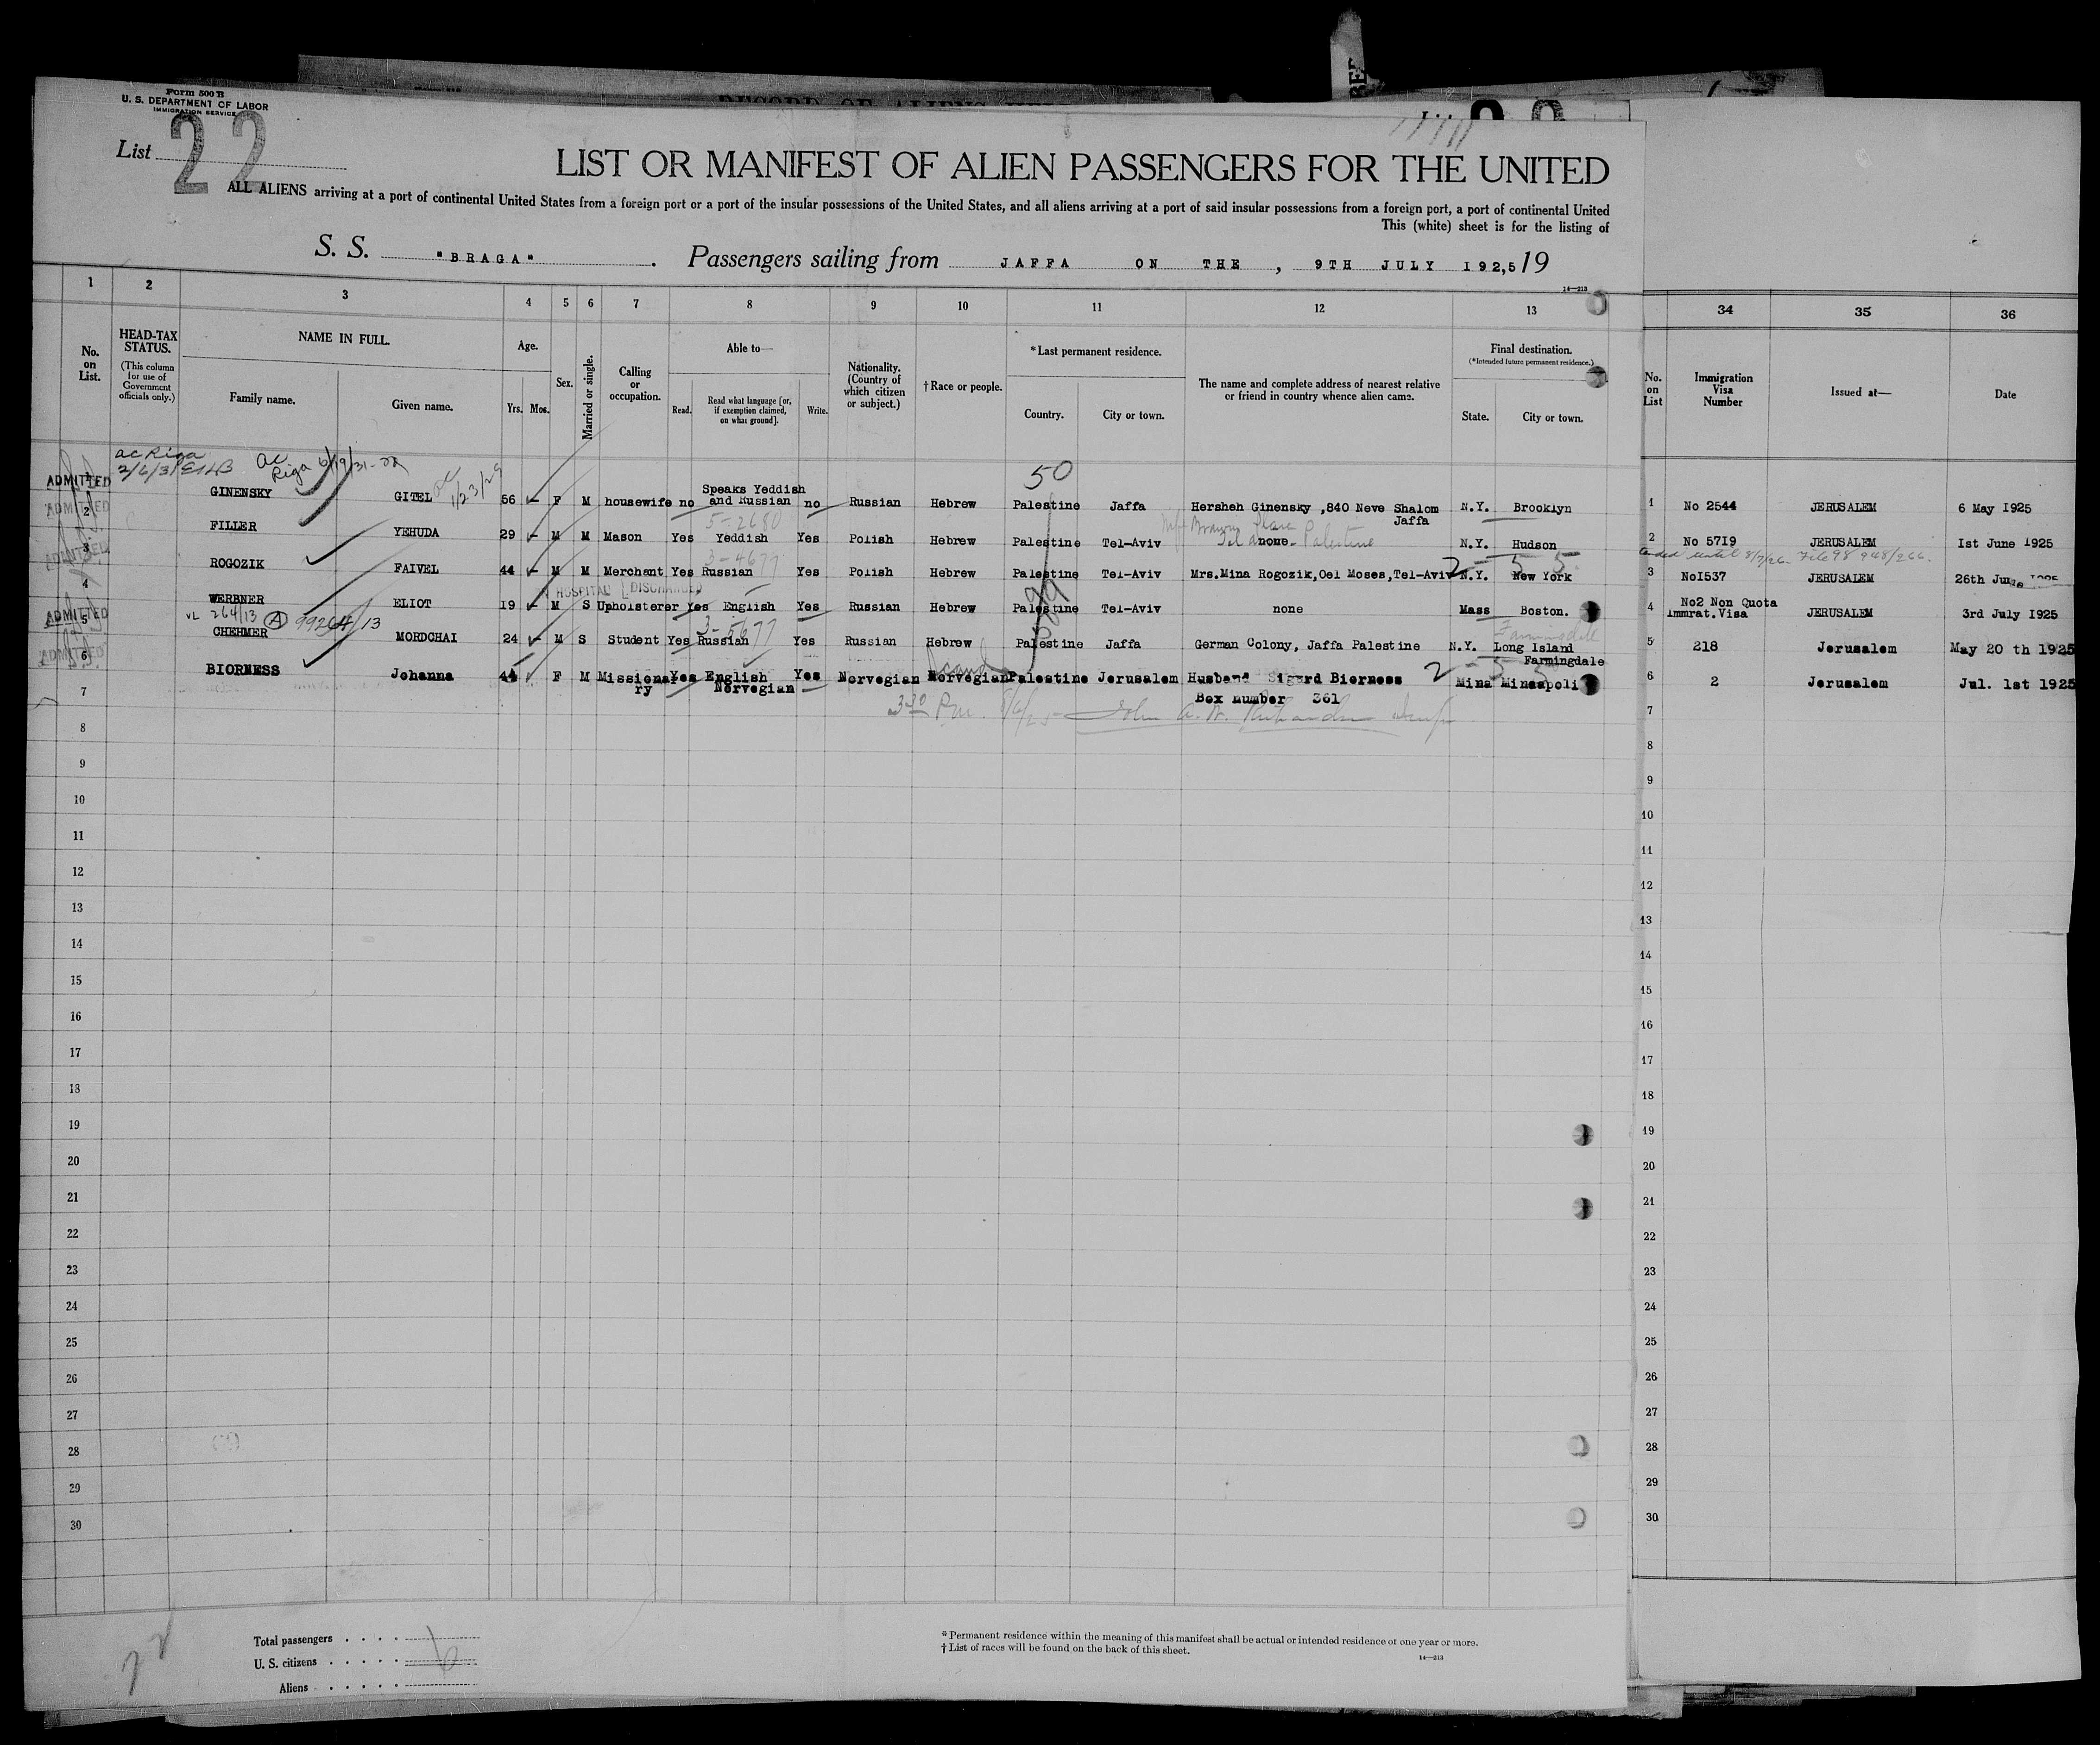 Form 500 B
U. S. DEPARTMENT OF LABOR
IMMIGRATION SERVICE
List 22
LIST OR MANIFEST OF ALIEN PASSENGERS FOR THE UNITED
ALL ALIENS arriving at a port of continental United States from a foreign port or a port of the insular possessions of the United States, and all aliens arriving at a port of said insular possessions from a foreign port, a port of continental United
This (white) sheet is for the listing of
S. S. "BRAGA". Passengers sailing from JAFFA ON THE , 9TH JULY I92,5 19
14—213
1 2 3 4 5 6 7 8 9 10 11 12 13 34 35 36
No. on List.
HEAD-TAX STATUS.
(This column for use of Government officials only.)
NAME IN FULL.
Family name.
Given name.
Age.
Yrs. Mos.
Sex.
Married or single.
Calling or occupation.
Able to—
Read.
Read what language [or, if exemption claimed, on what ground].
Write.
Nationality. (Country of which citizen or subject.)
† Race or people.
*Last permanent residence.
Country.
City or town.
The name and complete address of nearest relative or friend in country whence alien came.
Final destination.
(*Intended future permanent residence.)
State.
City or town.
No. on List
Immigration Visa Number
Issued at—
Date
ac Riga
2/6/31
ac Riga 6/19/31
1/23/29
50
ADMITTED
1 GINENSKY GITEL 56 F M housewife no Speaks Yeddish and Russian no Russian Hebrew Palestine Jaffa Hersheh Ginensky ,840 Neve Shalom Jaffa N.Y. Brooklyn 1 No 2544 JERUSALEM 6 May I925
ADMITTED
5-2680
2 FILLER YEHUDA 29 M M Mason Yes Yeddish Yes Polish Hebrew Palestine Tel-Aviv none Palestine N.Y. Hudson 2 No 57I9 JERUSALEM Ist June I925
ADMITTED
3-4677
2-5 5
3 ROGOZIK FAIVEL 44 M M Merchant Yes Russian Yes Polish Hebrew Palestine Tel-Aviv Mrs.Mina Rogozik,Oel Moses,Tel-Aviv N.Y. New York 3 NoI537 JERUSALEM 26th June
HOSPITAL DISCHARGED
4 WERBNER ELIOT I9 M S Upholsterer Yes English Yes Russian Hebrew Palestine Tel-Aviv none Mass Boston. 4 No2 Non Quota Immrat.Visa JERUSALEM 3rd July I925
ADMITTED
264/13 A 99264/13
3-5677
5 CHEHMER MORDCHAI 24 M S Student Yes Russian Yes Russian Hebrew Palestine Jaffa German Colony, Jaffa Palestine N.Y. Long Island Farmingdale 5 218 Jerusalem May 20 th 1925
ADMITTED
6 BIORNESS Johanna 44 F M Missionary Yes English Norvegian Yes Norvegian Norvegian Palestine Jerusalem Husband Sigurd Biorness Box number 361 Mina Mineapoli 6 2 Jerusalem Jul. 1st 1925
7 7
8 8
9 9
10 10
11 11
12 12
13 13
14 14
15 15
16 16
17 17
18 18
19 19
20 20
21 21
22 22
23 23
24 24
25 25
26 26
27 27
28 28
29 29
30 30
Total passengers . . . . 6
U. S. citizens . . . . .
Aliens . . . . .
* Permanent residence within the meaning of this manifest shall be actual or intended residence of one year or more.
† List of races will be found on the back of this sheet.
14—213